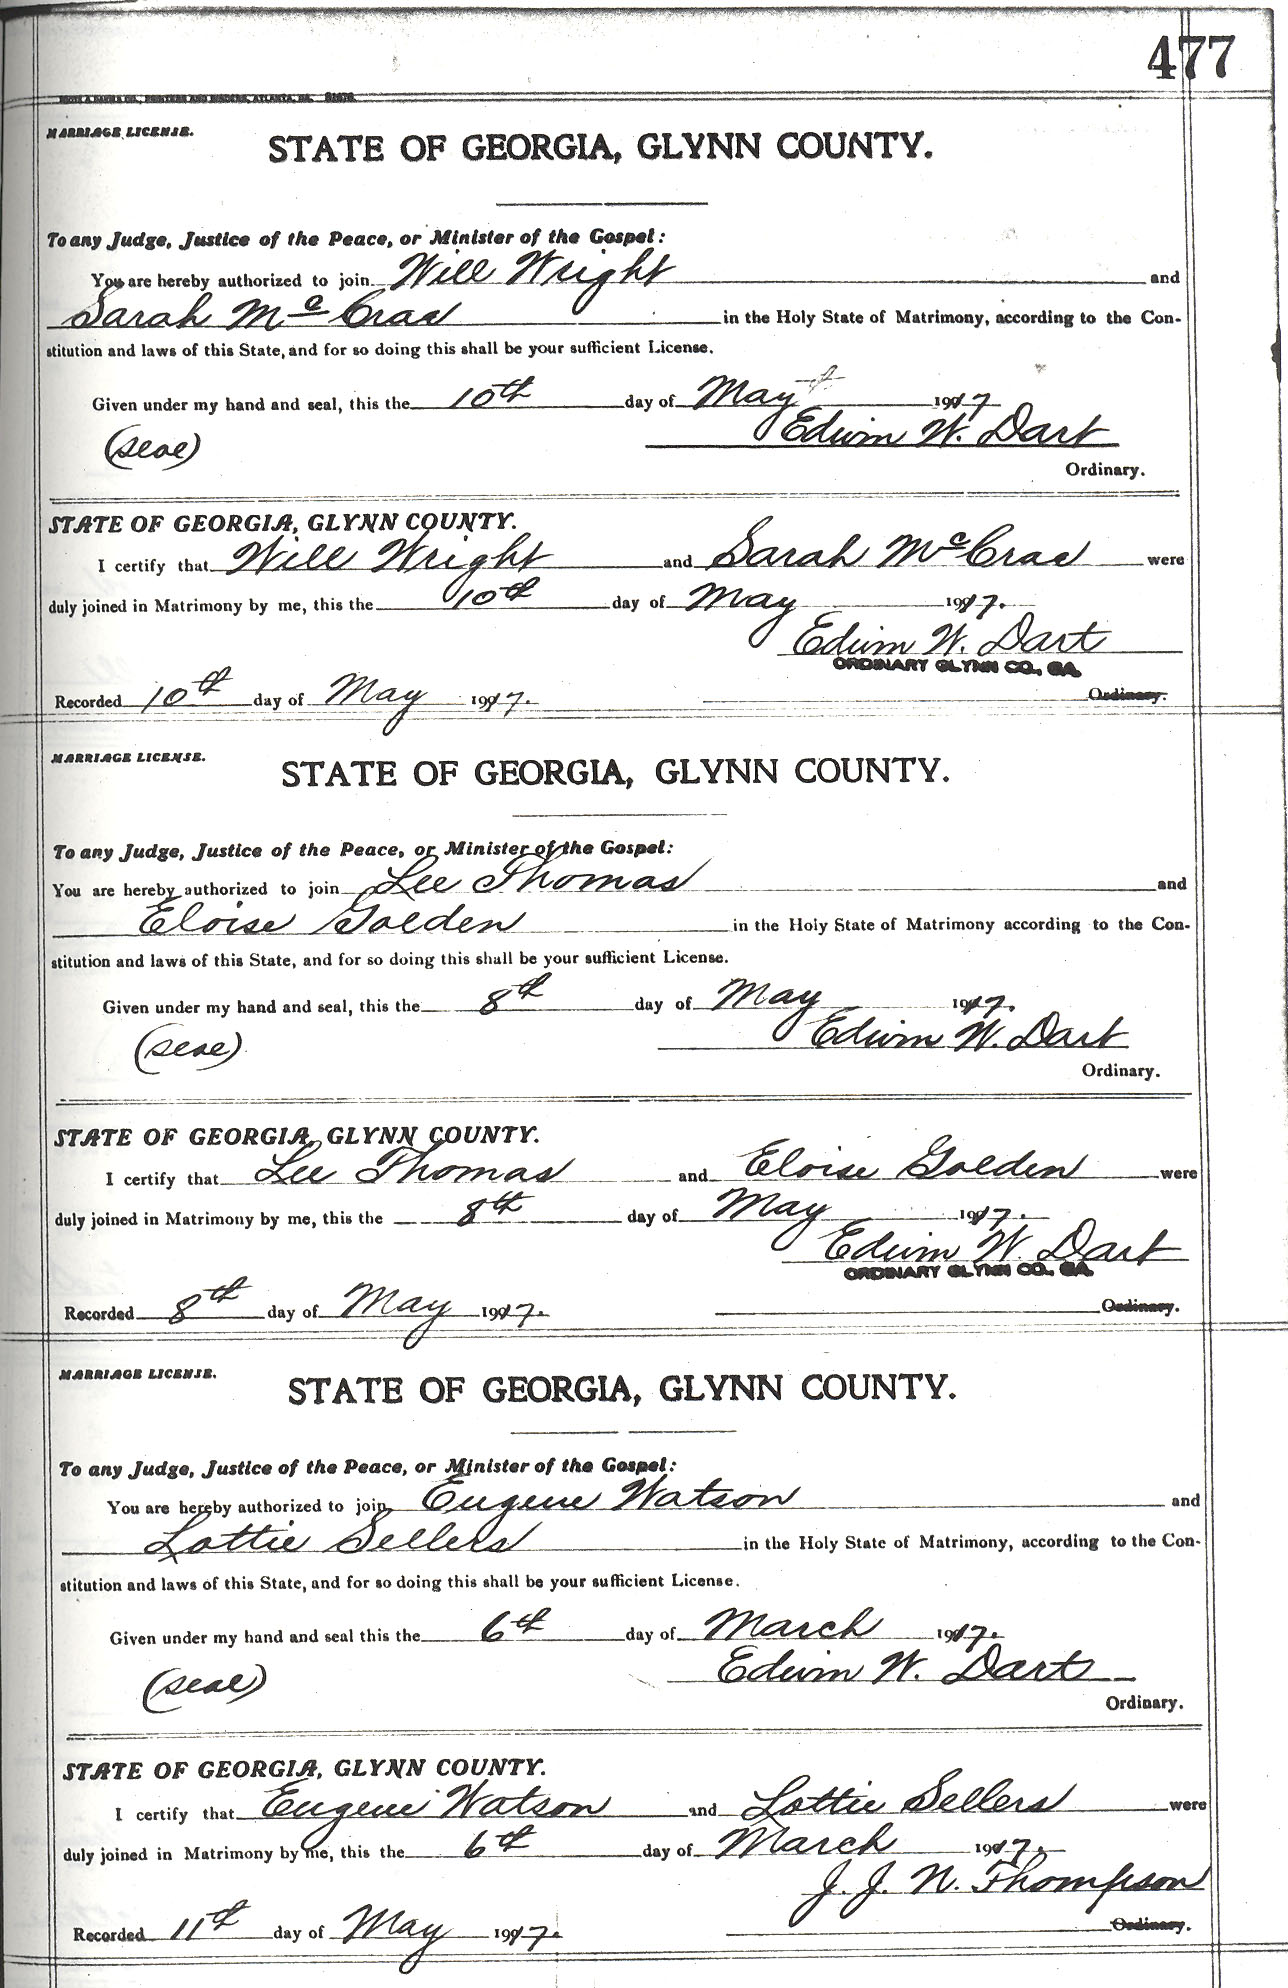 477
MARRIAGE LICENSE.
STATE OF GEORGIA, GLYNN COUNTY.
To any Judge, Justice of the Peace, or Minister of the Gospel:
You are hereby authorized to join Will Wright and
Sarah McCrae in the Holy State of Matrimony, according to the Con-
stitution and laws of this State, and for so doing this shall be your sufficient License.
Given under my hand and seal, this the 10th day of May 1917
(seal) Edwin W. Dart
Ordinary.
STATE OF GEORGIA, GLYNN COUNTY.
I certify that Will Wright and Sarah McCrae were
duly joined in Matrimony by me, this the 10th day of May 1917.
Edwin W. Dart
ORDINARY GLYNN CO., GA.
Recorded 10th day of May 1917. Ordinary.
MARRIAGE LICENSE.
STATE OF GEORGIA, GLYNN COUNTY.
To any Judge, Justice of the Peace, or Minister of the Gospel:
You are hereby authorized to join Lee Thomas and
Eloise Golden in the Holy State of Matrimony according to the Con-
stitution and laws of this State, and for so doing this shall be your sufficient License.
Given under my hand and seal, this the 8th day of May 1917.
(seal) Edwin W. Dart
Ordinary.
STATE OF GEORGIA, GLYNN COUNTY.
I certify that Lee Thomas and Eloise Golden were
duly joined in Matrimony by me, this the 8th day of May 1917.
Edwin W. Dart
ORDINARY GLYNN CO., GA.
Recorded 8th day of May 1917. Ordinary.
MARRIAGE LICENSE.
STATE OF GEORGIA, GLYNN COUNTY.
To any Judge, Justice of the Peace, or Minister of the Gospel:
You are hereby authorized to join Eugene Watson and
Lottie Sellers in the Holy State of Matrimony, according to the Con-
stitution and laws of this State, and for so doing this shall be your sufficient License.
Given under my hand and seal this the 6th day of March 1917.
(seal) Edwin W. Dart
Ordinary.
STATE OF GEORGIA, GLYNN COUNTY.
I certify that Eugene Watson and Lottie Sellers were
duly joined in Matrimony by me, this the 6th day of March 1917.
J. J. N. Thompson
Recorded 11th day of May 1917. Ordinary.